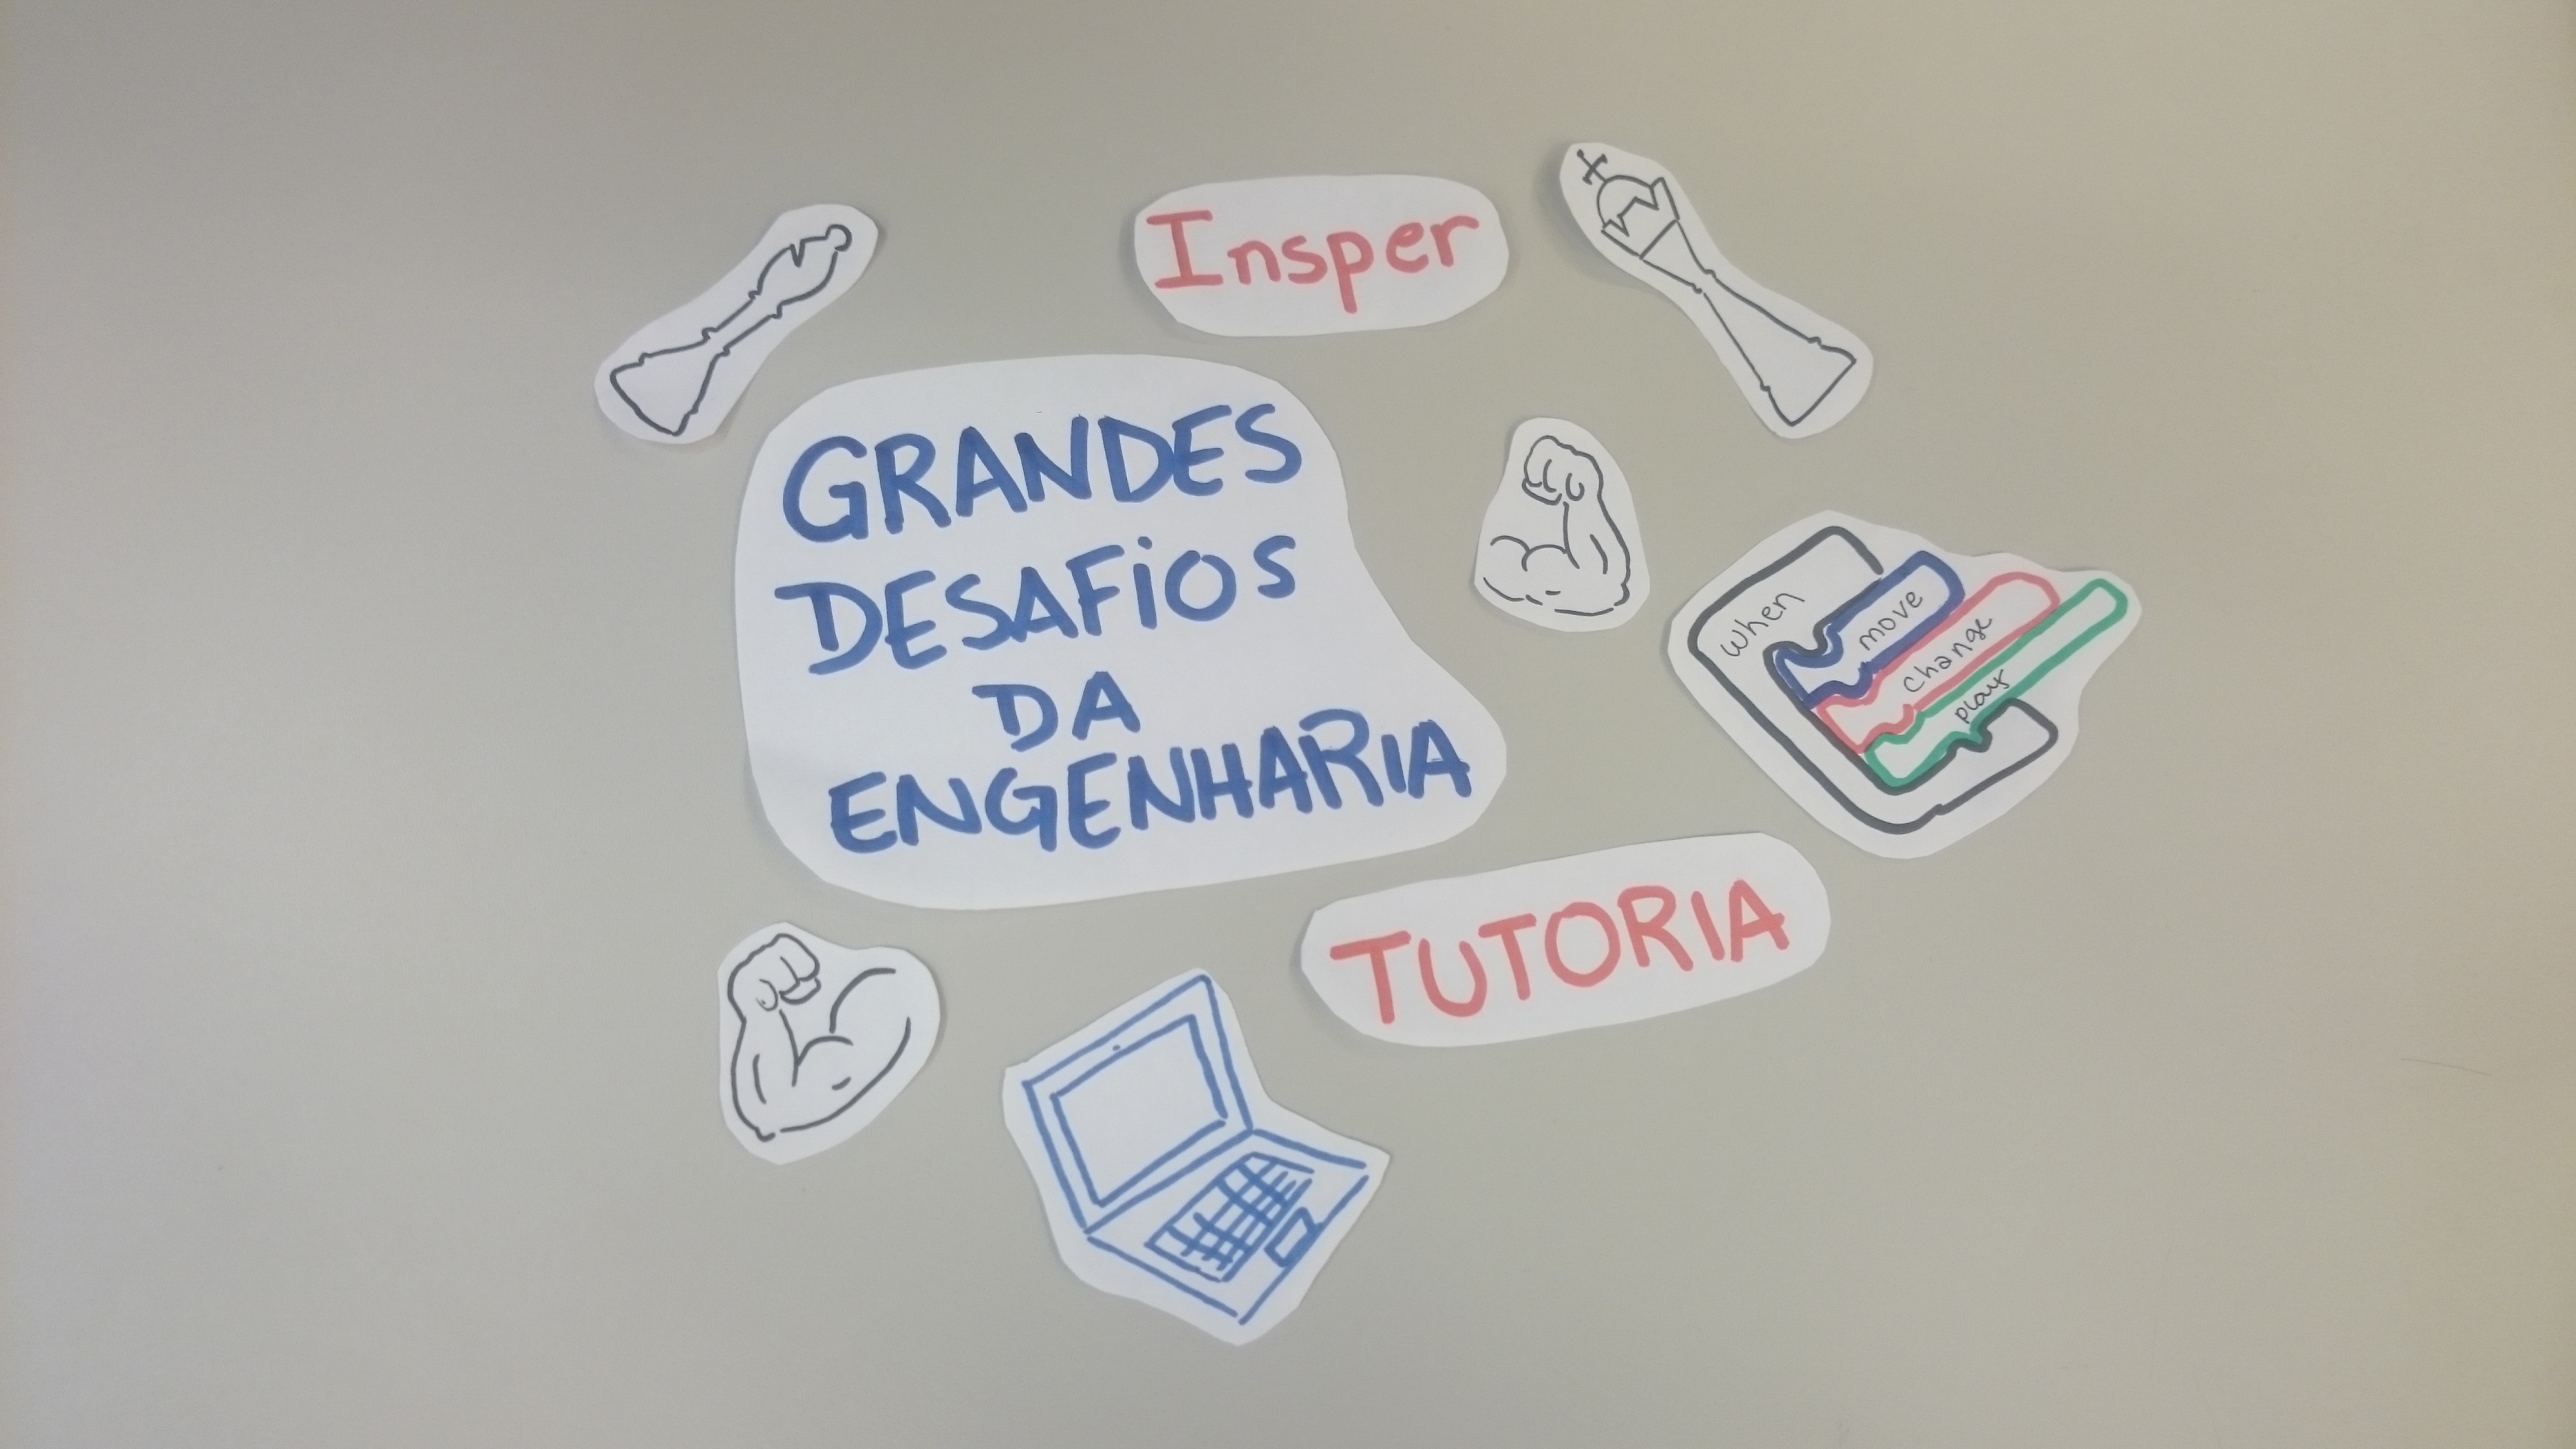 Insper
GRANDES
DESAFiOS
DA
ENGENHARIA
when
move
change
play
TUTORIA